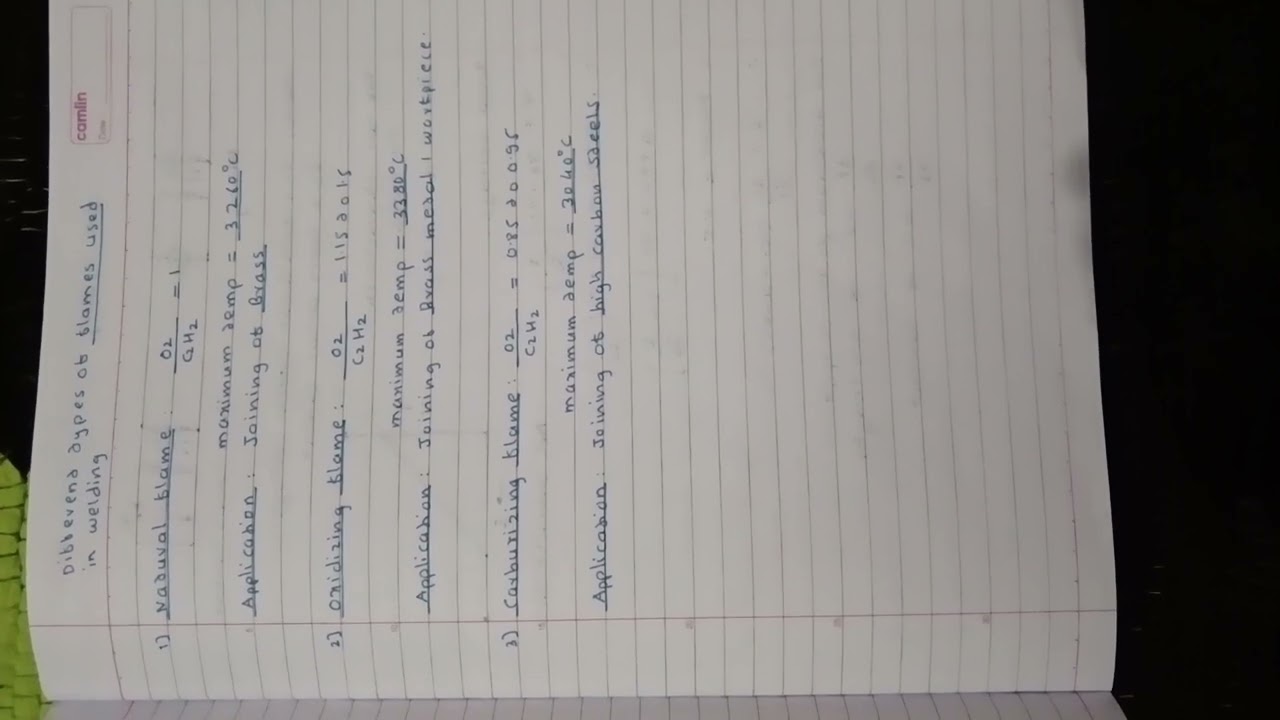 camlin
Date
Different types of flames used
in welding
1) Natural flame : O2 / C2H2 = 1
maximum temp = 3260°C
Application : Joining of Brass
2) Oxidizing flame : O2 / C2H2 = 1.15 to 1.5
maximum temp = 3380°C
Application : Joining of Brass metal / workpiece.
3) Carburizing flame : O2 / C2H2 = 0.85 to 0.95
maximum temp = 3040°C
Application : Joining of high carbon steels.